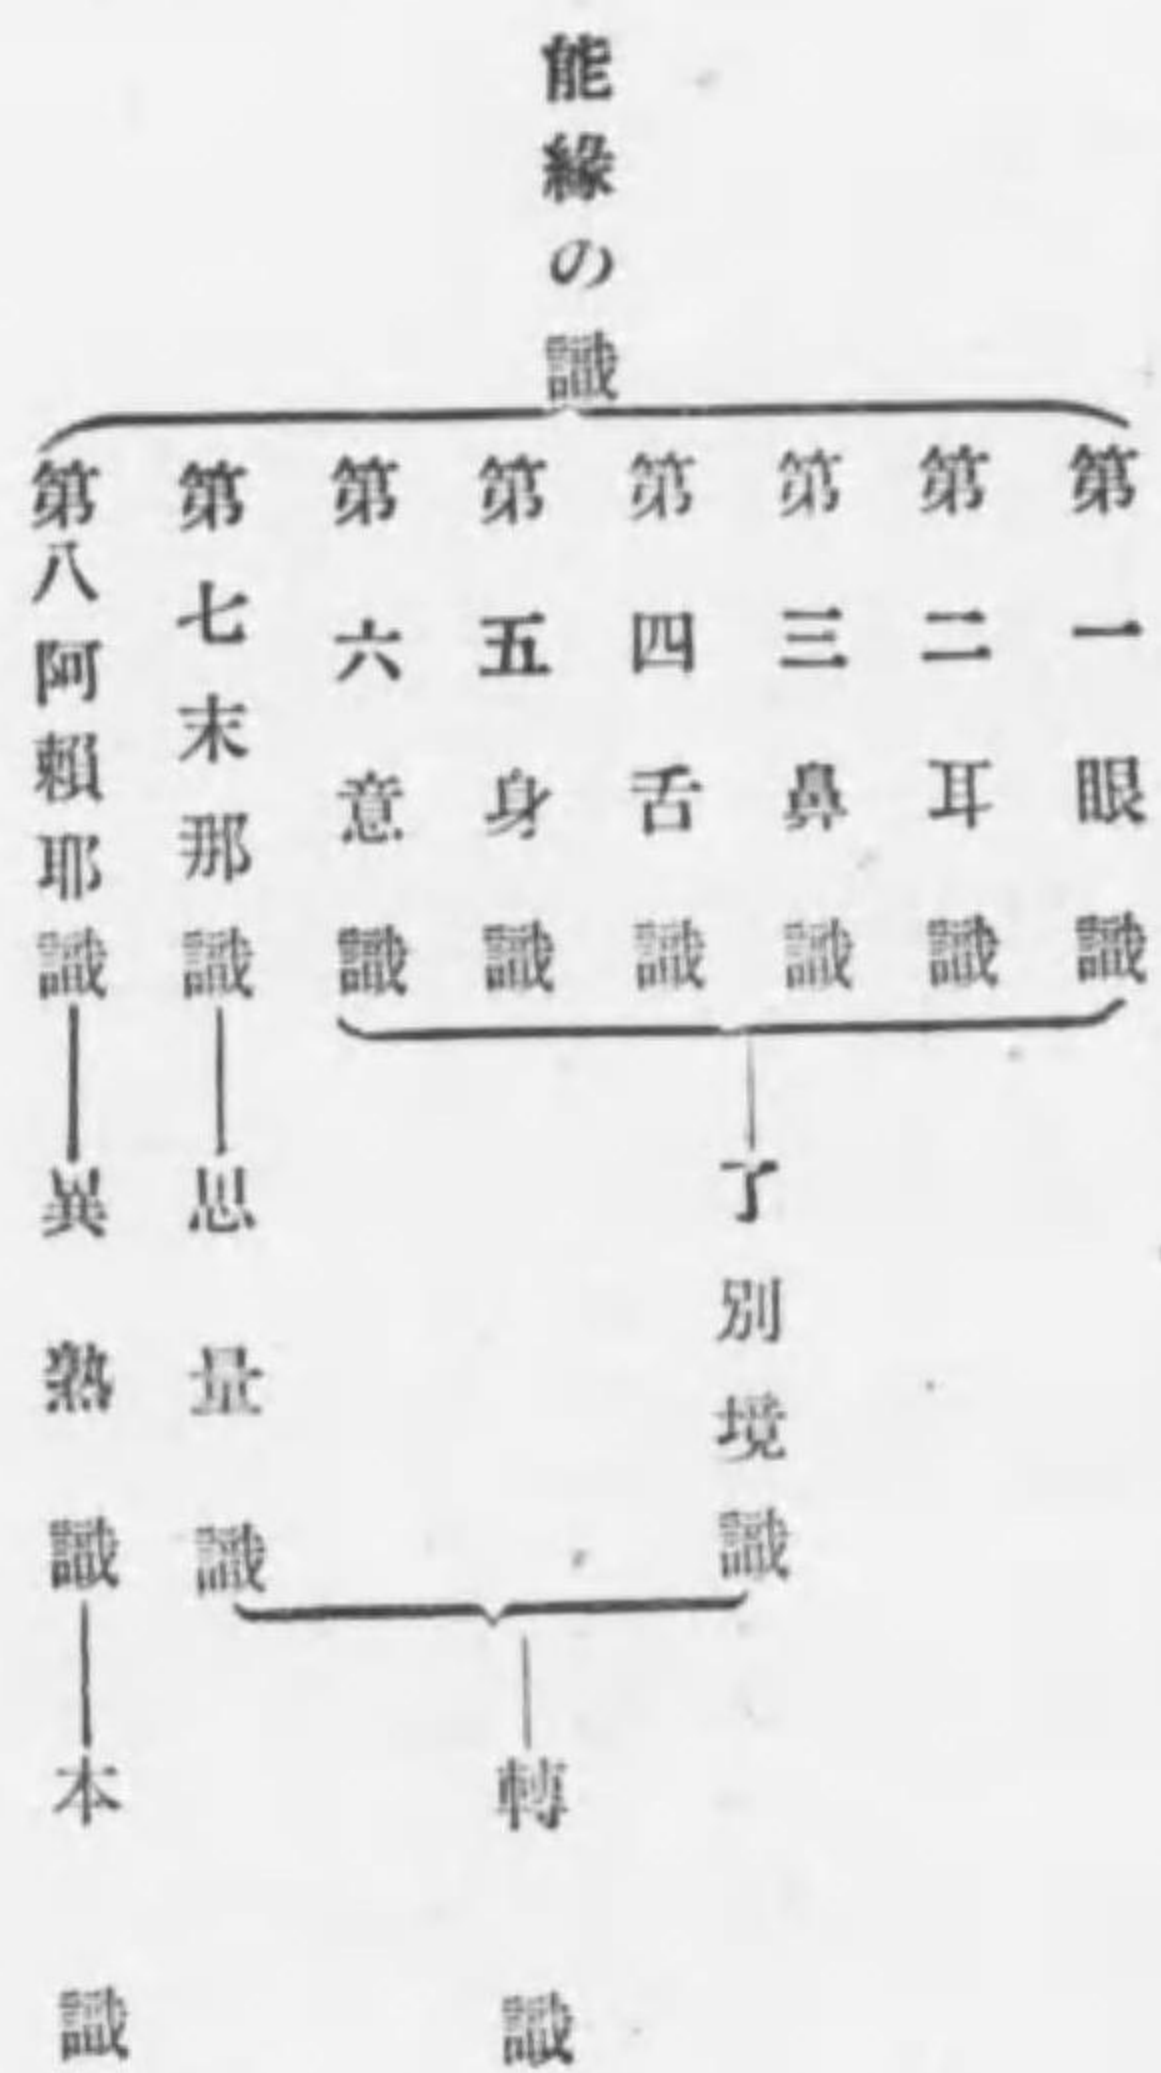 能緣の識
第一眼識
第二耳識
第三鼻識
第四舌識
第五身識
第六意識
第七末那識
第八阿賴耶識
了別境識
思量識
異熟識
轉識
本識